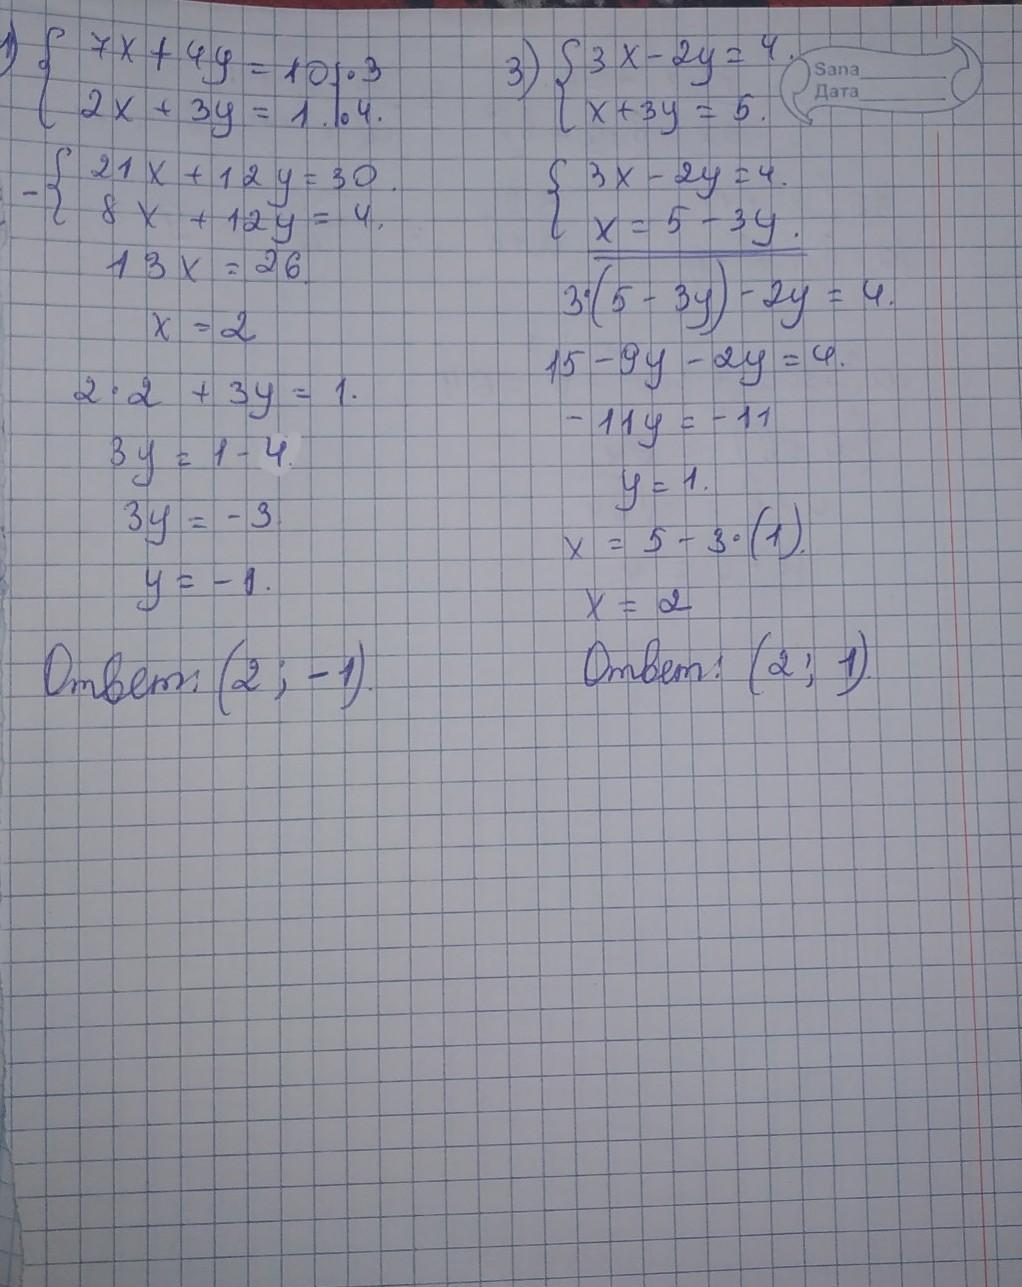 1) { 7x + 4y = 10 | · 3
2x + 3y = 1. | · 4.
- { 21x + 12y = 30.
8x + 12y = 4.
13x = 26
x = 2
2 · 2 + 3y = 1.
3y = 1 - 4.
3y = -3
y = -1.
Ответ: (2; -1).
3) { 3x - 2y = 4.
x + 3y = 5.
{ 3x - 2y = 4.
x = 5 - 3y.
3·(5 - 3y) - 2y = 4.
15 - 9y - 2y = 4.
-11y = -11
y = 1.
x = 5 - 3·(1).
x = 2
Ответ: (2; 1).
Sana
Дата